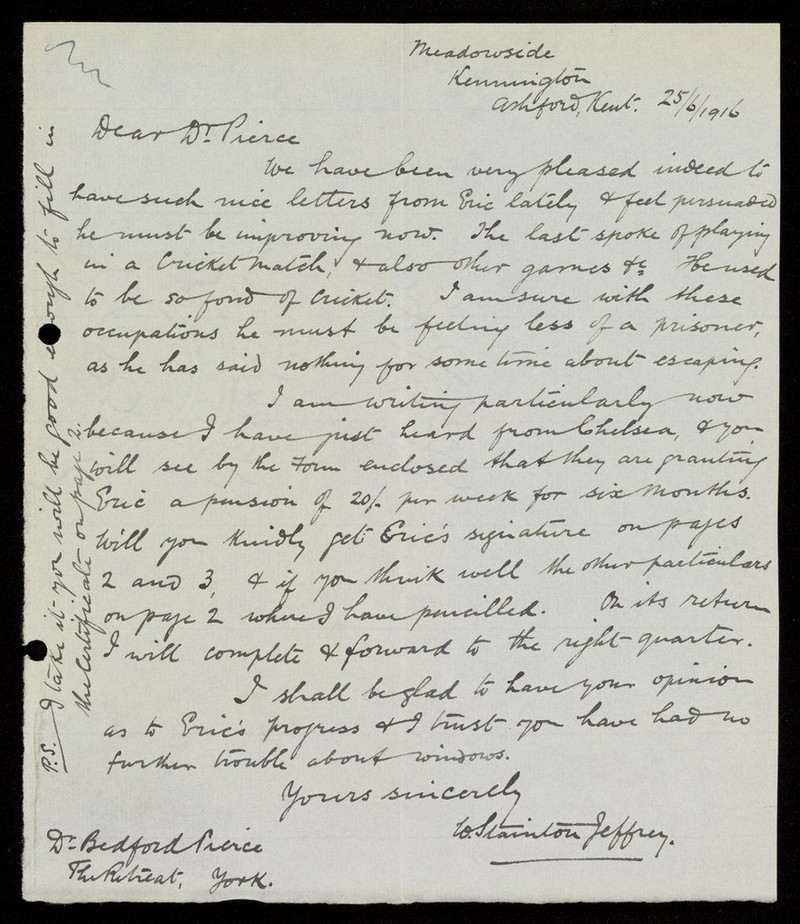 Meadowside
Kennington
Ashford, Kent. 25/6/1916
Dear Dr Pierce
We have been very pleased indeed to
have such nice letters from Eric lately & feel persuaded
he must be improving now. The last spoke of playing
in a Cricket match, & also other games &c. He used
to be so fond of Cricket. I am sure with these
occupations he must be feeling less of a prisoner,
as he has said nothing for some time about escaping.
I am writing particularly now
because I have just heard from Chelsea, & you
will see by the Form enclosed that they are granting
Eric a pension of 20/- per week for six months.
Will you kindly get Eric's signature on pages
2 and 3, & if you think well the other particulars
on page 2 where I have pencilled. On its return
I will complete & forward to the right quarter.
I shall be glad to have your opinion
as to Eric's progress & I trust you have had no
further trouble about windows.
Yours sincerely
W. Stainton Jeffrey.
Dr Bedford Pierce
The Retreat, York.
P.S. I take it you will be good enough to fill in
the Certificate on page 2.